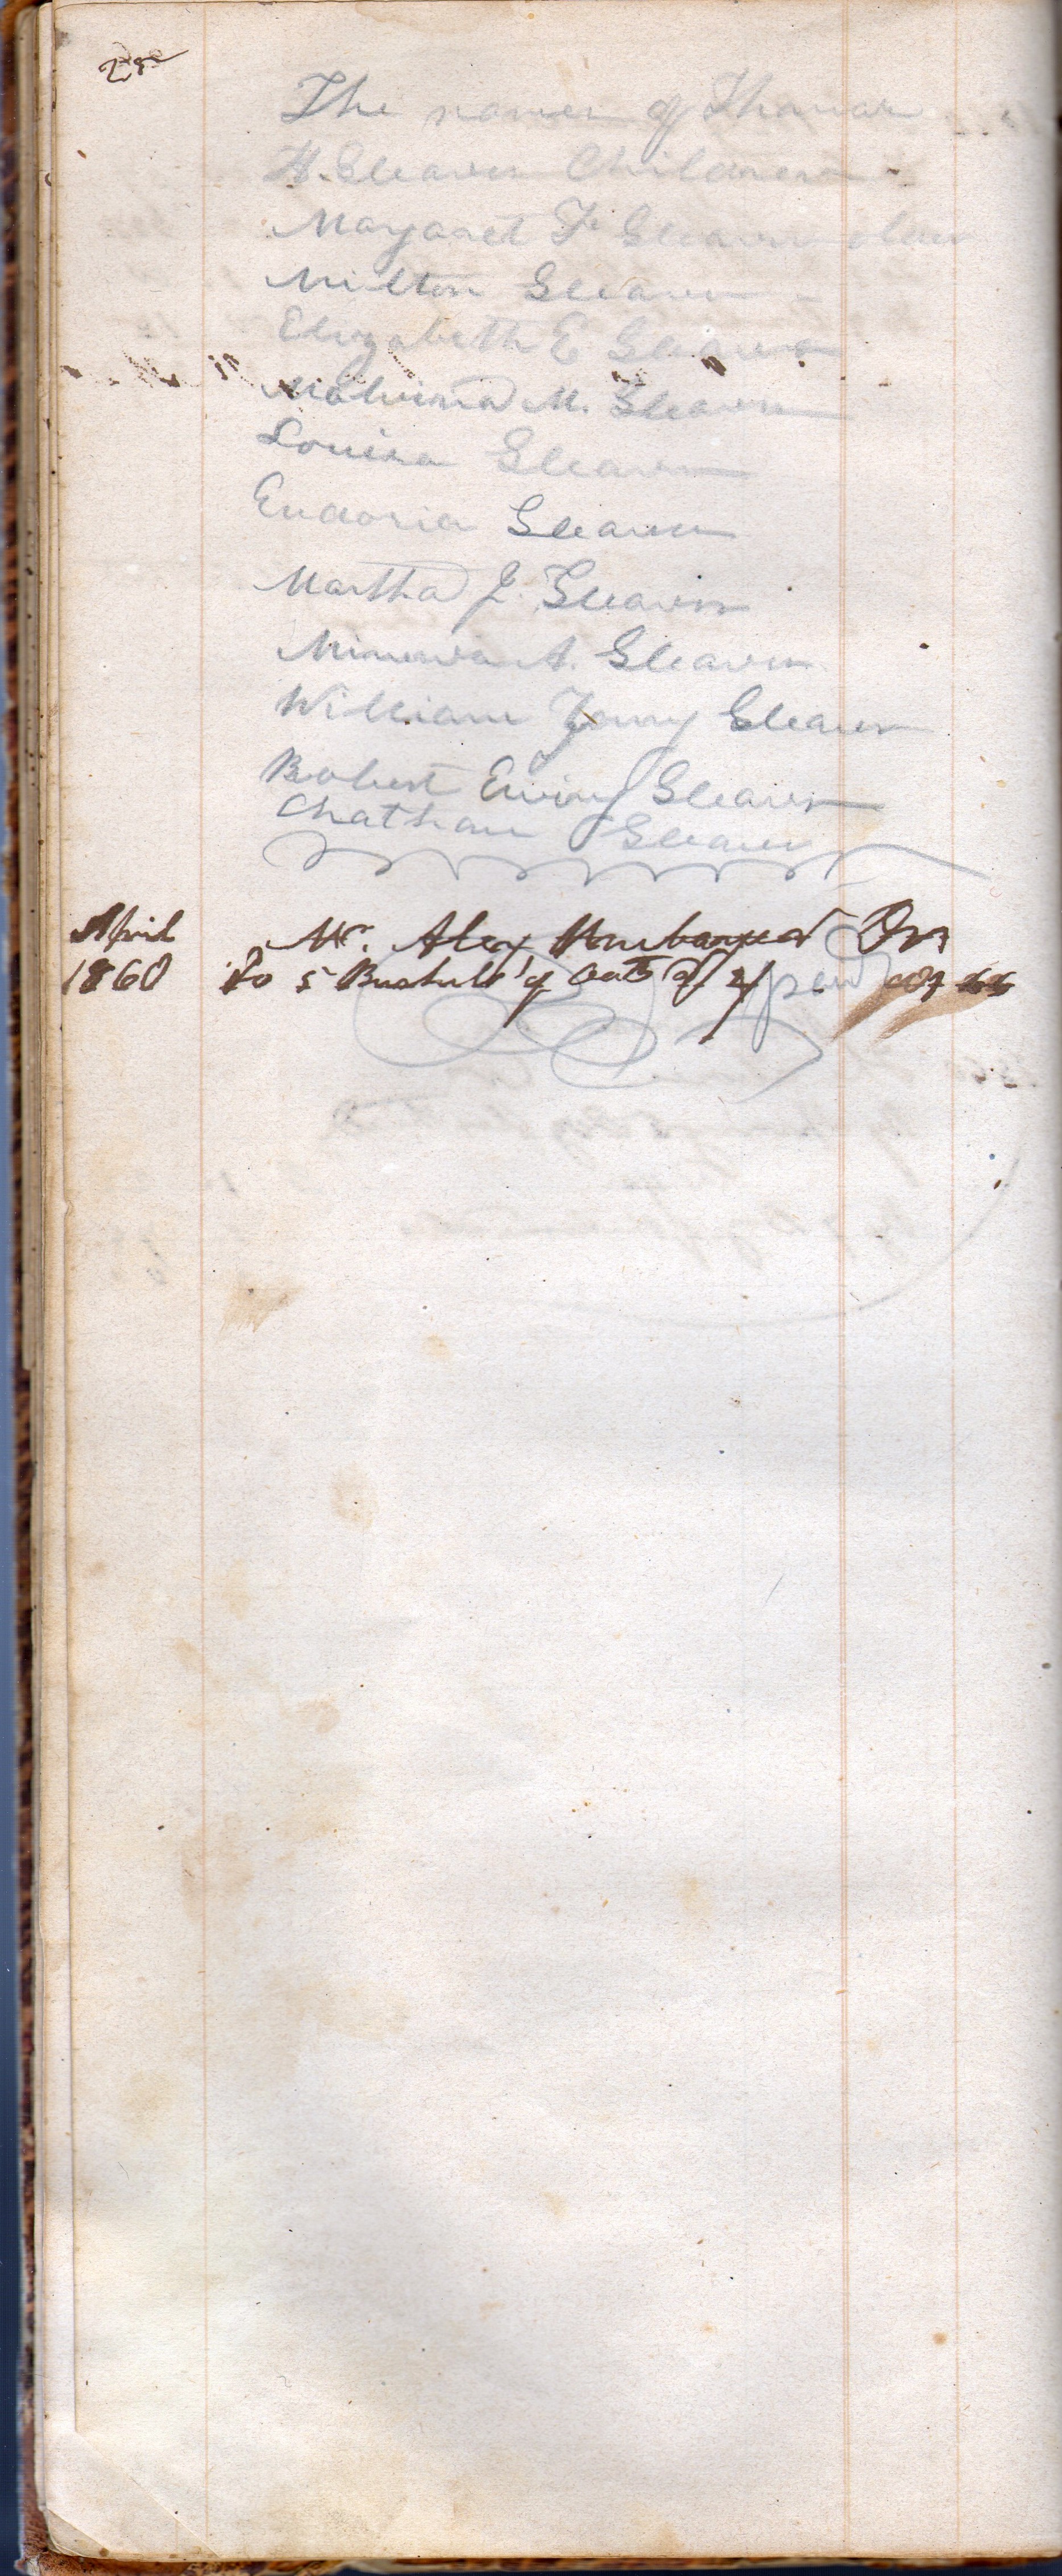 The names of Thomas
H. Gleaves Children
Margaret F. Gleaves
Milton Gleaves
Elizabeth E Gleaves
Malvina M. Gleaves
Louisa Gleaves
Eudoria Gleaves
Martha J. Gleaves
Minerva A. Gleaves
William Gleaves
Robert Ewing Gleaves
Chatham Gleaves
April Mr. Alex Dr
1860 To 5 Bushels of Oats 2/